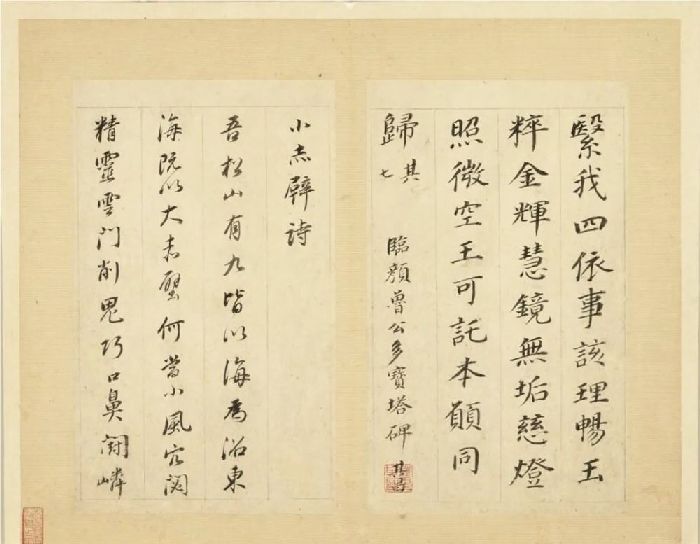 繄我四依事該理暢玉
粹金輝慧鏡無垢慈燈
照微空王可託本願同
歸其七
臨顏魯公多寶塔碑 其昌
小赤壁詩
吾松山有九皆以海為沼東
海既以大赤壁何當小風宕
精靈雲門削鬼巧口鼻閜嶙